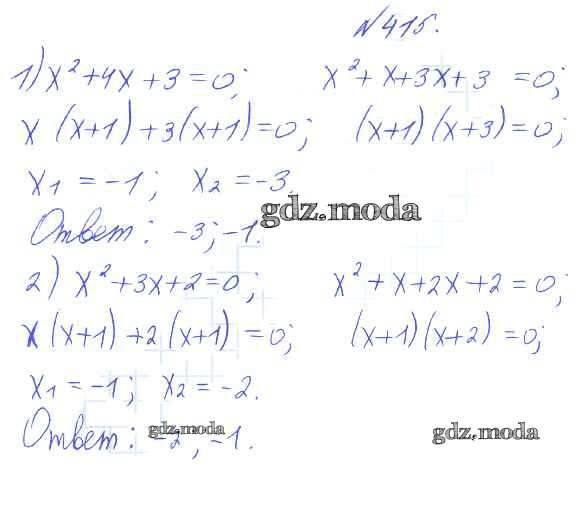 №415.
1) x²+4x+3=0; x²+x+3x+3 =0;
x (x+1)+3(x+1)=0; (x+1)(x+3)=0;
x₁ =-1; x₂ =-3.
gdz.moda
Ответ: -3;-1.
2) x²+3x+2=0; x²+x+2x+2 =0;
x(x+1)+2(x+1) =0; (x+1)(x+2) =0;
x₁ =-1; x₂ =-2.
Ответ: -2;-1.
gdz.moda gdz.moda